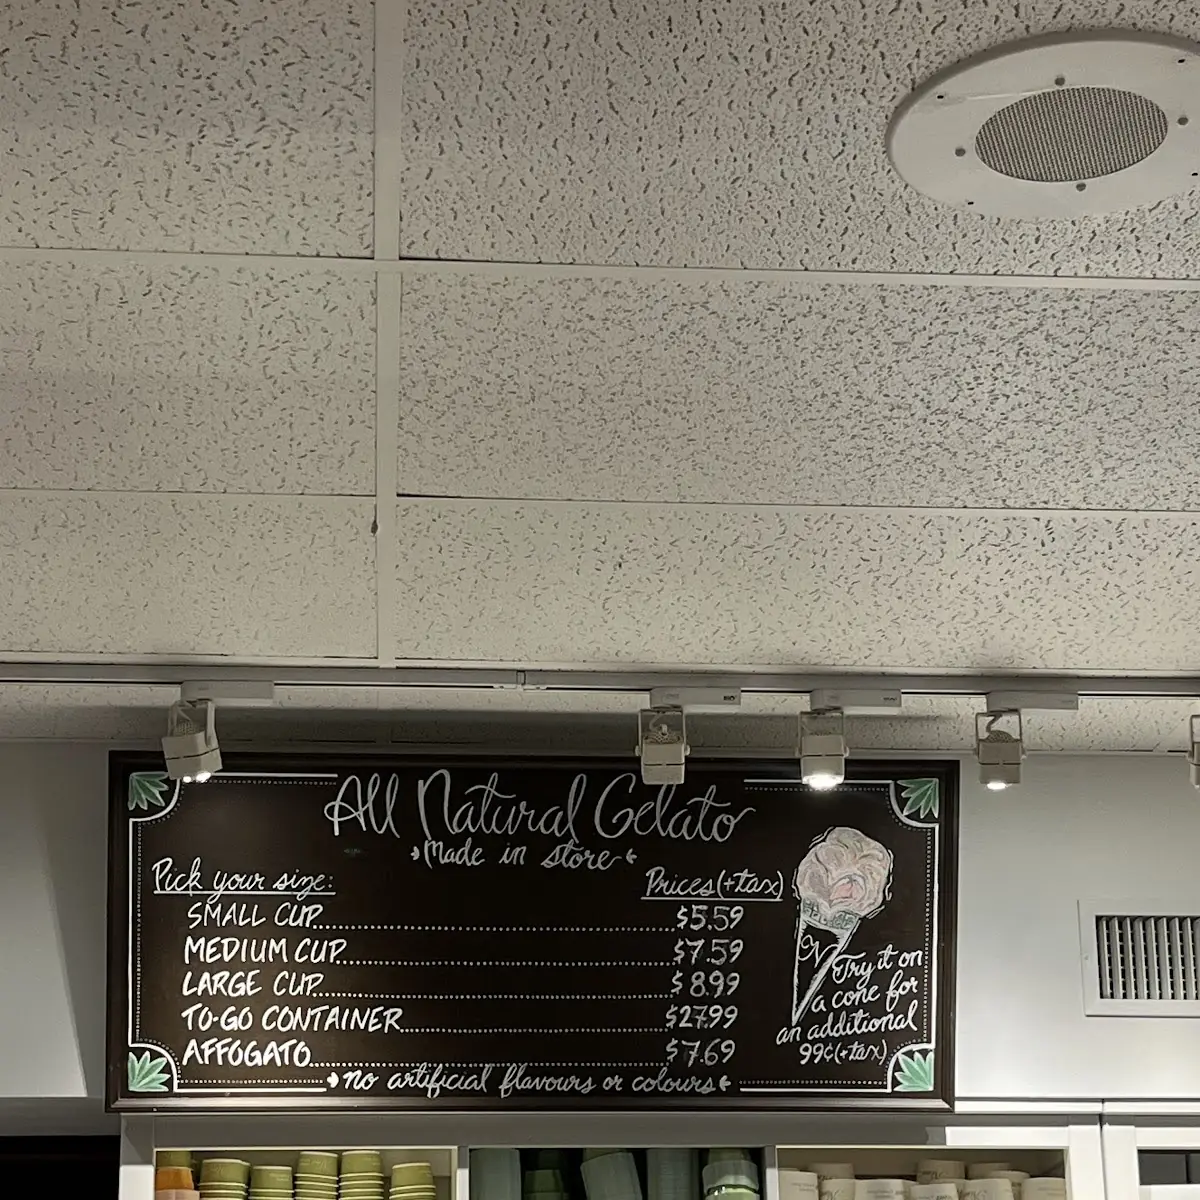 All Natural Gelato
Made in store
Pick your size: Prices (+tax)
SMALL CUP $5.59
MEDIUM CUP $7.59
LARGE CUP $8.99
TO-GO CONTAINER $27.99
AFFOGATO $7.69
no artificial flavours or colours
Try it on
a cone for
an additional
99¢ (+tax)